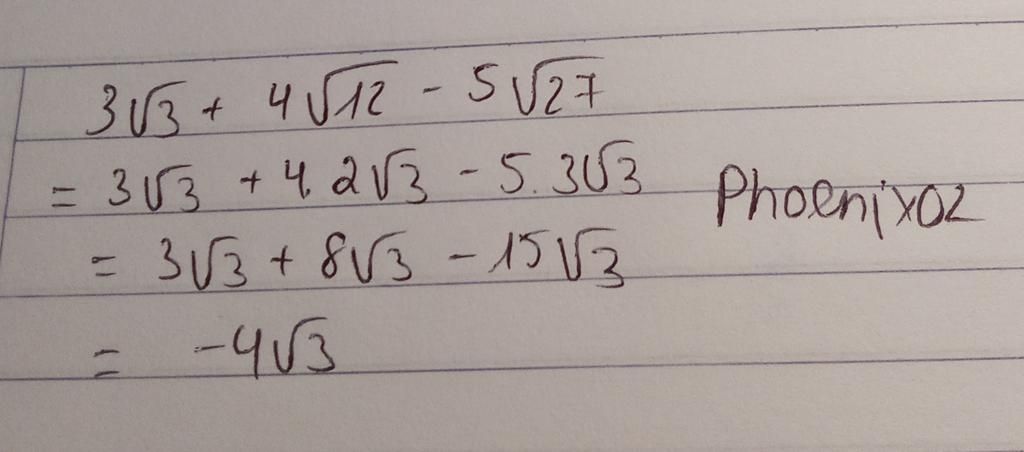 3√3 + 4√12 - 5√27
= 3√3 + 4.2√3 - 5.3√3
Phoenix02
= 3√3 + 8√3 - 15√3
= -4√3